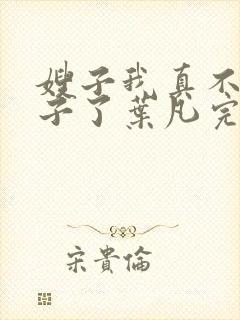 嫂子我真不
子了葉凡完
宋貴倫